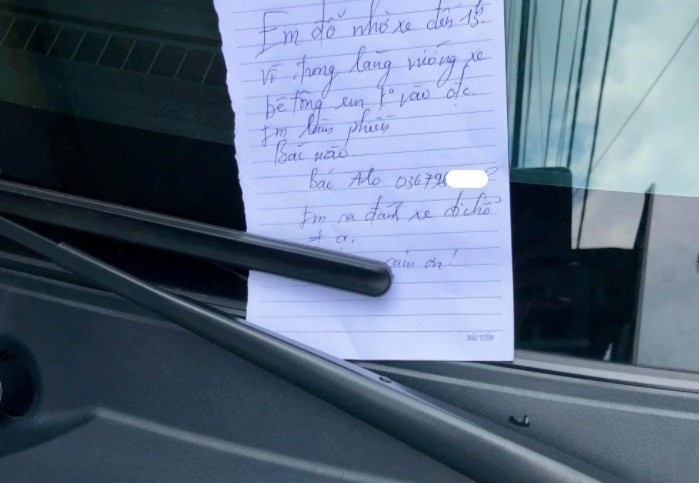 Em đỗ nhờ xe đến 15h
vì trong làng vướng xe
bê tông em k° vào đc.
Em làm phiền
Bác nào.
Bác Alo 03679
Em ra đánh xe đi chỗ
≠ ạ.
cảm ơn!
HẢI TIẾN